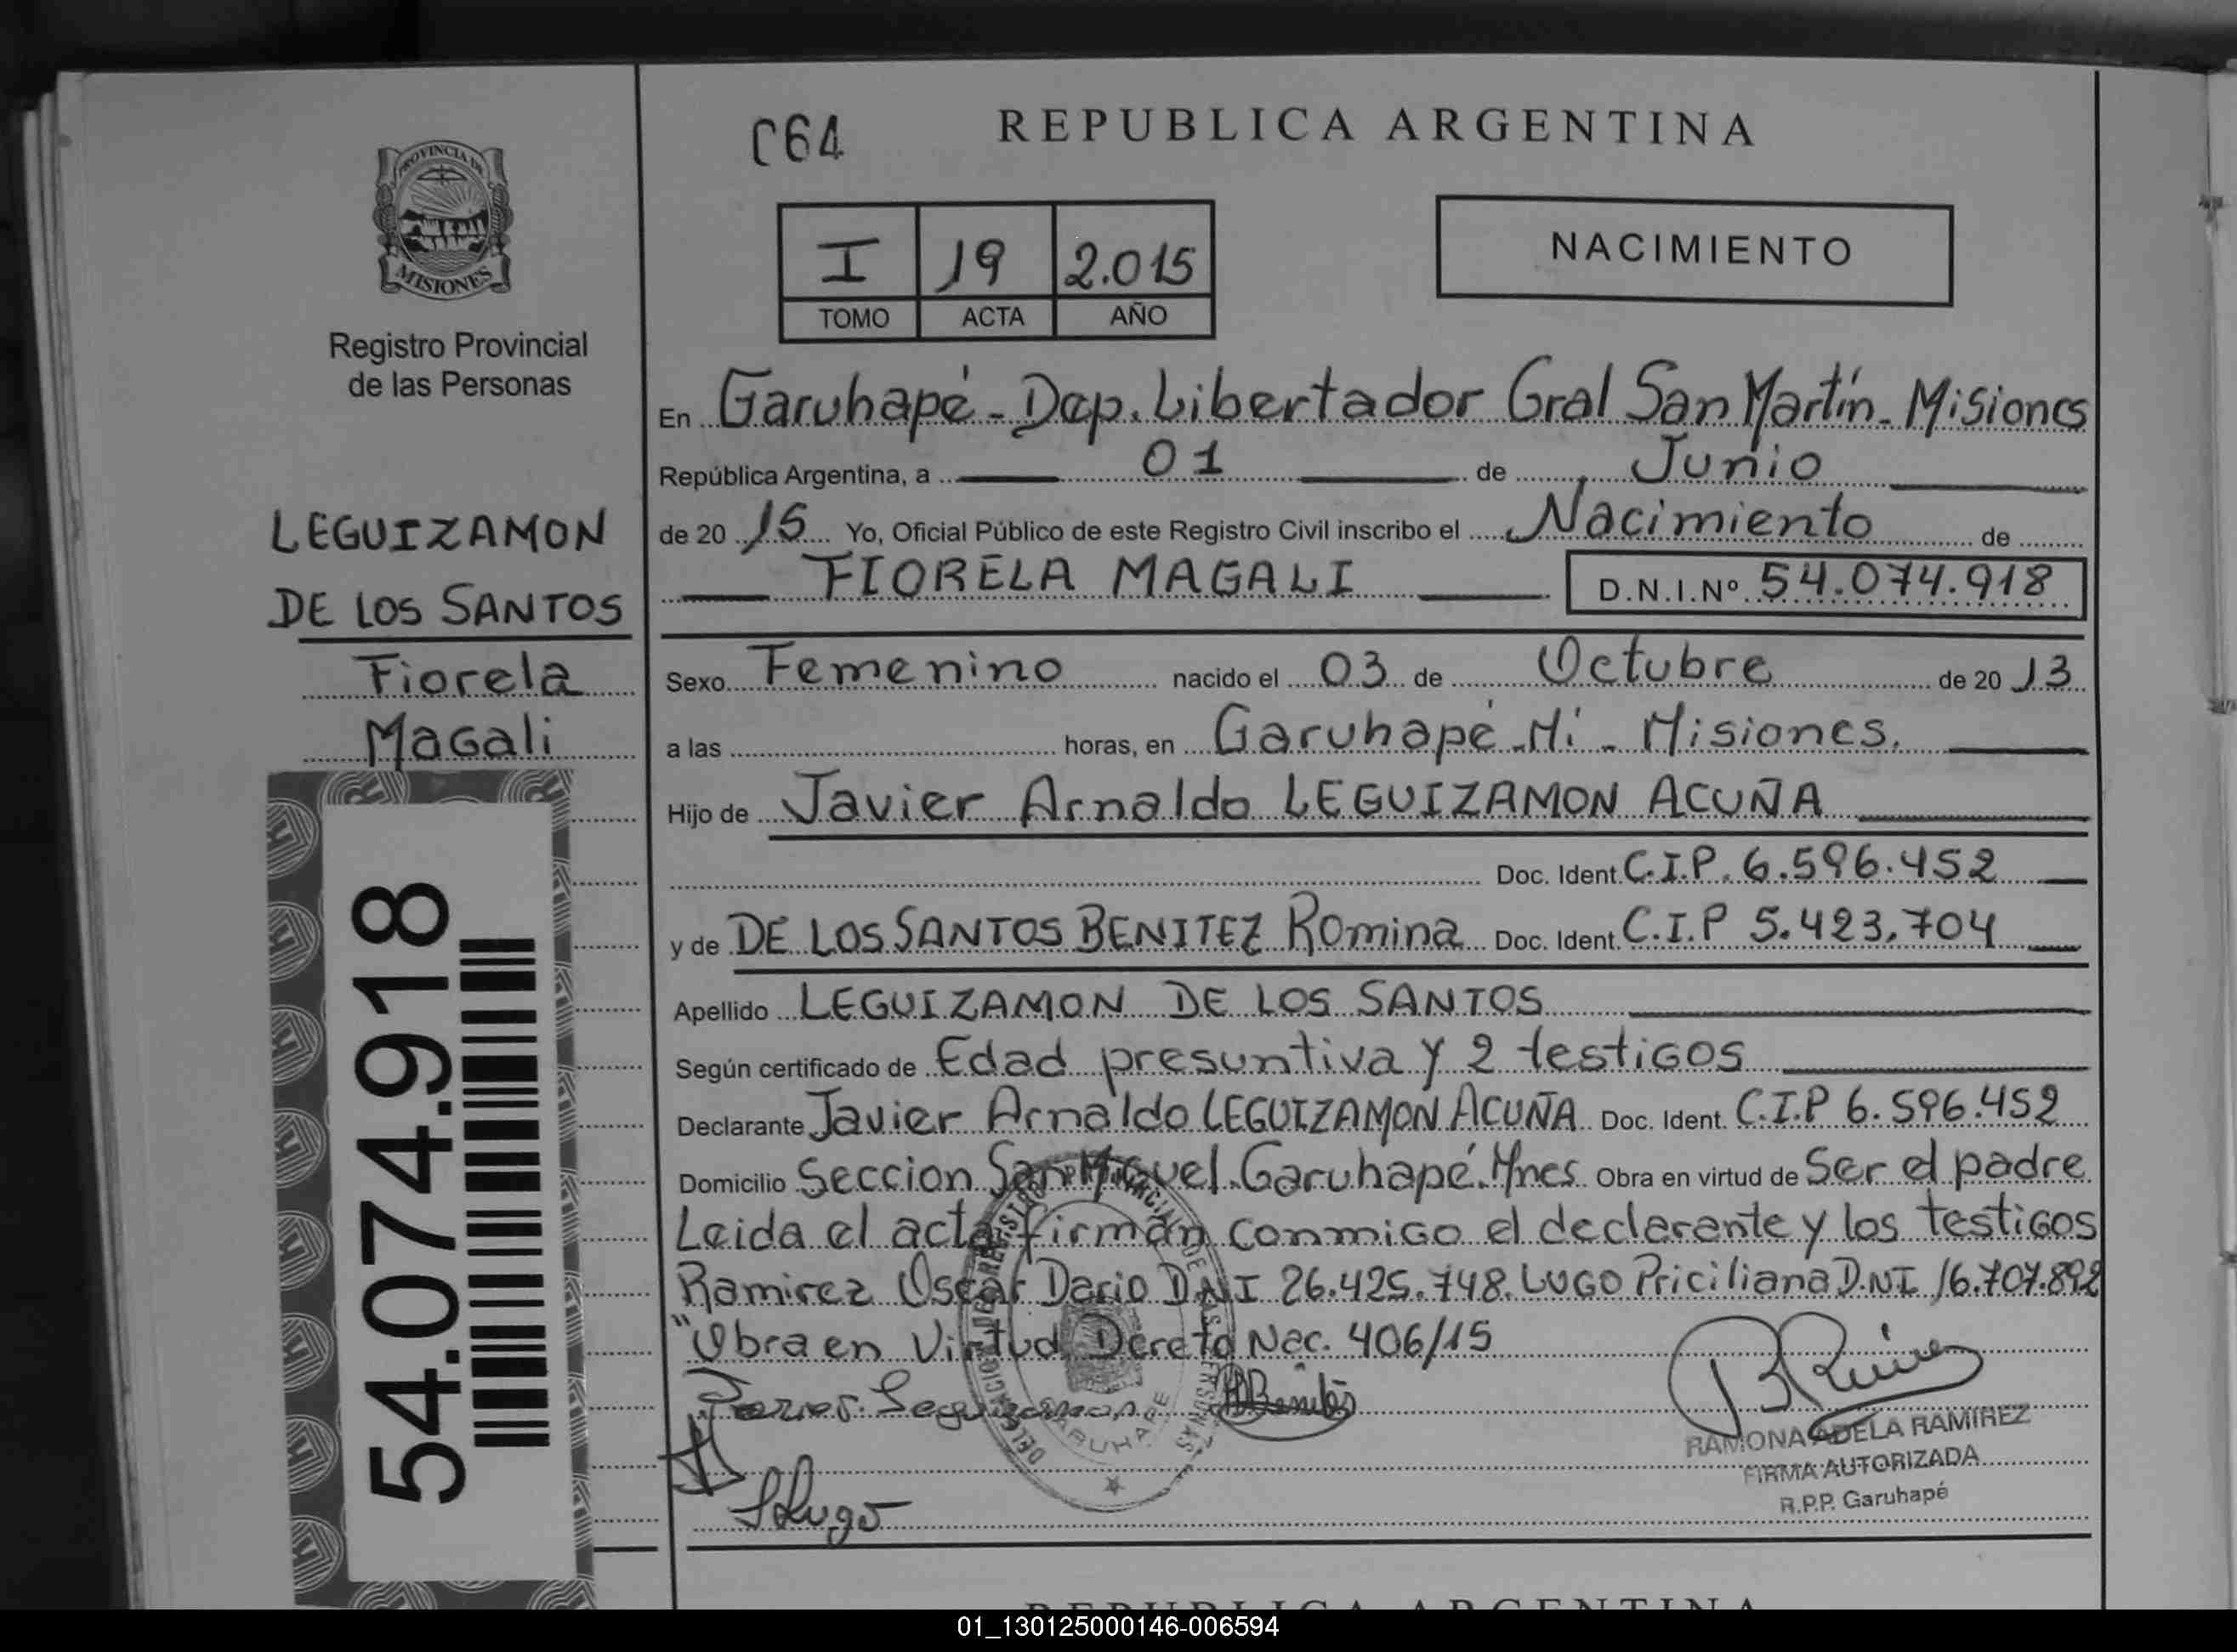 C64
REPUBLICA ARGENTINA
PROVINCIA DE
MISIONES
Registro Provincial
de las Personas
I 19 2.015
TOMO ACTA AÑO
NACIMIENTO
LEGUIZAMON
DE LOS SANTOS
Fiorela
Magali
54.074.918
En Garuhapé - Dep. Libertador Gral San Martín - Misiones
República Argentina, a 01 de Junio
de 20 15 Yo, Oficial Público de este Registro Civil inscribo el Nacimiento de
FIORELA MAGALI D.N.I.Nº 54.074.918
Sexo Femenino nacido el 03 de Octubre de 20 13
a las horas, en Garuhapé - Mi - Misiones.
Hijo de Javier Arnaldo LEGUIZAMON ACUÑA
Doc. Ident. C.I.P. 6.596.452
y de DE LOS SANTOS BENITEZ Romina Doc. Ident. C.I.P 5.423.704
Apellido LEGUIZAMON DE LOS SANTOS
Según certificado de Edad presuntiva y 2 testigos
Declarante Javier Arnaldo LEGUIZAMON ACUÑA Doc. Ident. C.I.P 6.596.452
Domicilio Seccion San Miguel. Garuhapé. Mnes Obra en virtud de Ser el padre
Leida el acta firman conmigo el declarante y los testigos
Ramirez Oscar Dario D.N.I 26.425.748. LUGO Priciliana D.N.I 16.707.892
"Obra en Virtud Decreto Nac. 406/15
Javier Leguizamon
Benitez
RAMONA ADELA RAMIREZ
FIRMA AUTORIZADA
R.P.P. Garuhapé
Lugo
REPUBLICA ARGENTINA
01_130125000146-006594